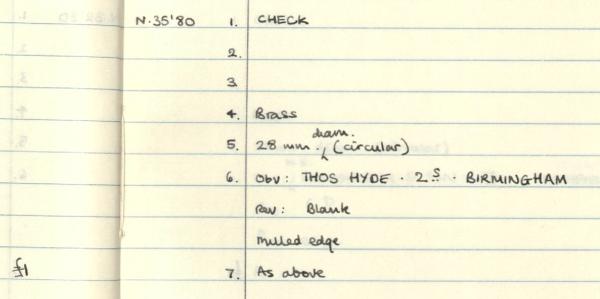 N.35'80 1. CHECK
2.
3
4. Brass
5. 28 mm. diam. (circular)
6. Obv: THOS HYDE · 2S · BIRMINGHAM
Rev: Blank
Milled edge
£1 7. As above